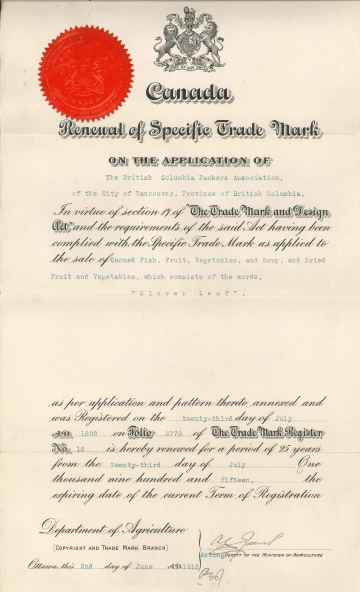 Canada
Renewal of Specific Trade Mark
ON THE APPLICATION OF
The British Columbia Packers Association,
of the City of Vancouver, Province of British Columbia.
In virtue of section 19 of "The Trade Mark and Design
Act," and the requirements of the said Act having been
complied with the Specific Trade Mark as applied to
the sale of Canned Fish, Fruit, Vegetables, and Soup, and Dried
Fruit and Vegetables, which consists of the words,
"Clover Leaf".
as per application and pattern thereto annexed and
was Registered on the twenty-third day of July
on Folio of The Trade Mark Register
No. 16 is hereby renewed for a period of 25 years
from the twenty-third day of July One
thousand nine hundred and fifteen, the
expiring date of the current Term of Registration
Department of Agriculture
(COPYRIGHT AND TRADE MARK BRANCH)
Acting DEPUTY OF THE MINISTER OF AGRICULTURE
Ottawa, this 2nd day of June